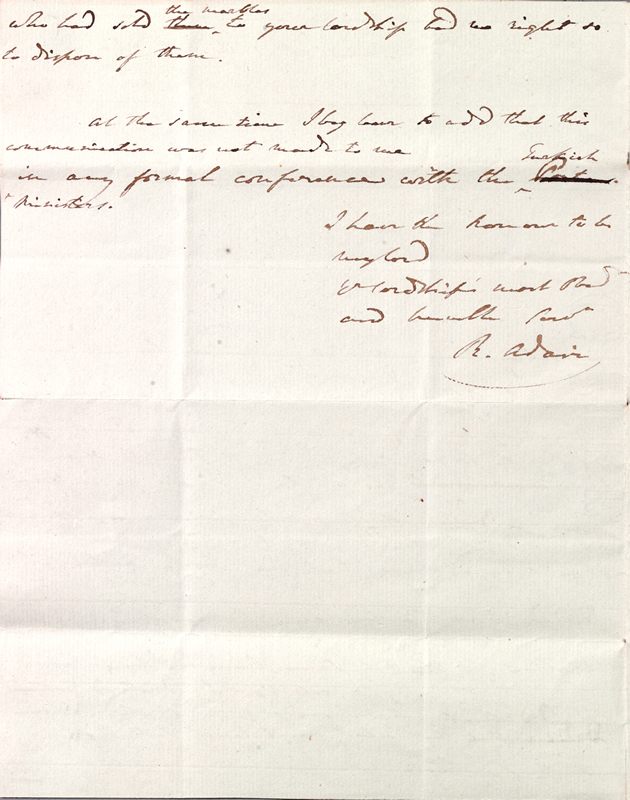 the marbles
who had sold them to your lordship had no right so
to dispose of them.
At the same time I beg leave to add that this
communication was not made to me
Turkish
in any formal conference with the Porte.
Ministers.
I have the honour to be
my lord
Yr lordship's most Obed
and humble Servt
R. Adair